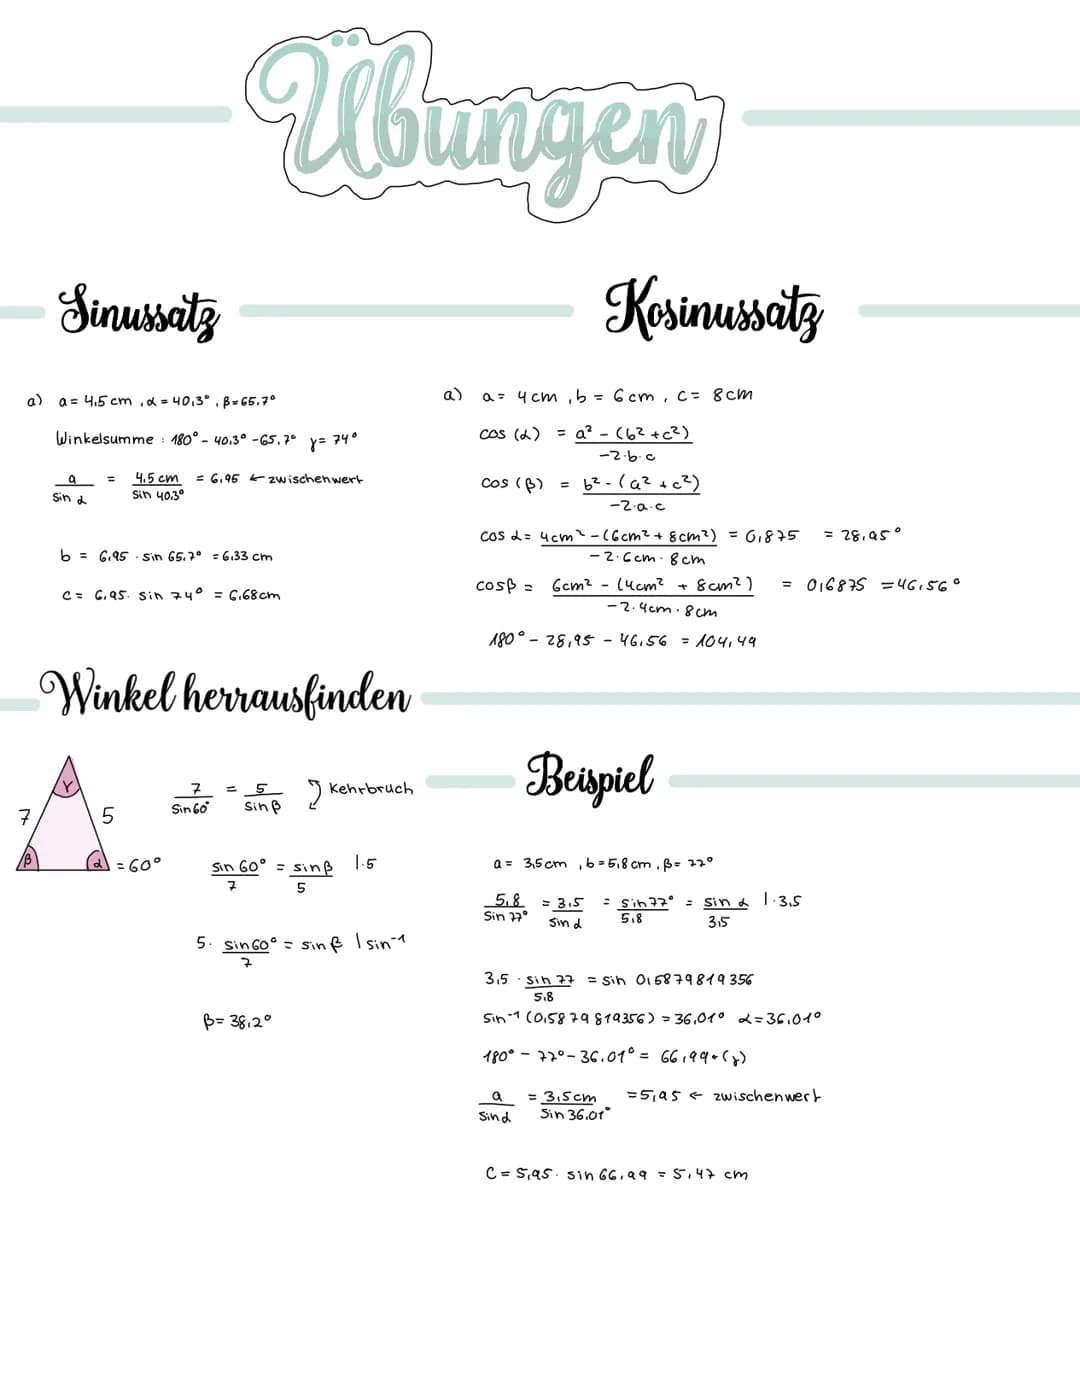 Übungen
Sinussatz
a) a = 4,5 cm , α = 40,3° , β = 65,7°
Winkelsumme : 180° - 40,3° - 65,7° γ = 74°
a/sin α = 4,5 cm/sin 40,3° = 6,95 ← zwischenwert
b = 6,95 · sin 65,7° = 6,33 cm
c = 6,95 · sin 74° = 6,68 cm
Kosinussatz
a) a = 4 cm , b = 6 cm , c = 8 cm
cos (α) = a² - (b² + c²)/-2·b·c
cos (β) = b² - (a² + c²)/-2·a·c
cos α = 4cm² - (6cm² + 8cm²)/-2·6cm·8cm = 0,875 = 28,95°
cos β = 6cm² - (4cm² + 8cm²)/-2·4cm·8cm = 0,6875 = 46,56°
180° - 28,95 - 46,56 = 104,49
Winkel herrausfinden
γ
7 5
β α = 60°
7/sin 60° = 5/sin β Kehrbruch
sin 60°/7 = sin β/5 |·5
5 · sin 60°/7 = sin β | sin⁻¹
β = 38,2°
Beispiel
a = 3,5 cm , b = 5,8 cm , β = 77°
5,8/sin 77° = 3,5/sin α = sin 77°/5,8 = sin α/3,5 |·3,5
3,5 · sin 77/5,8 = sin 0,5879819356
sin⁻¹ (0,5879819356) = 36,01° α = 36,01°
180° - 77° - 36,01° = 66,99° (γ)
a/sin α = 3,5 cm/sin 36,01° = 5,95 ← zwischenwert
C = 5,95 · sin 66,99 = 5,47 cm